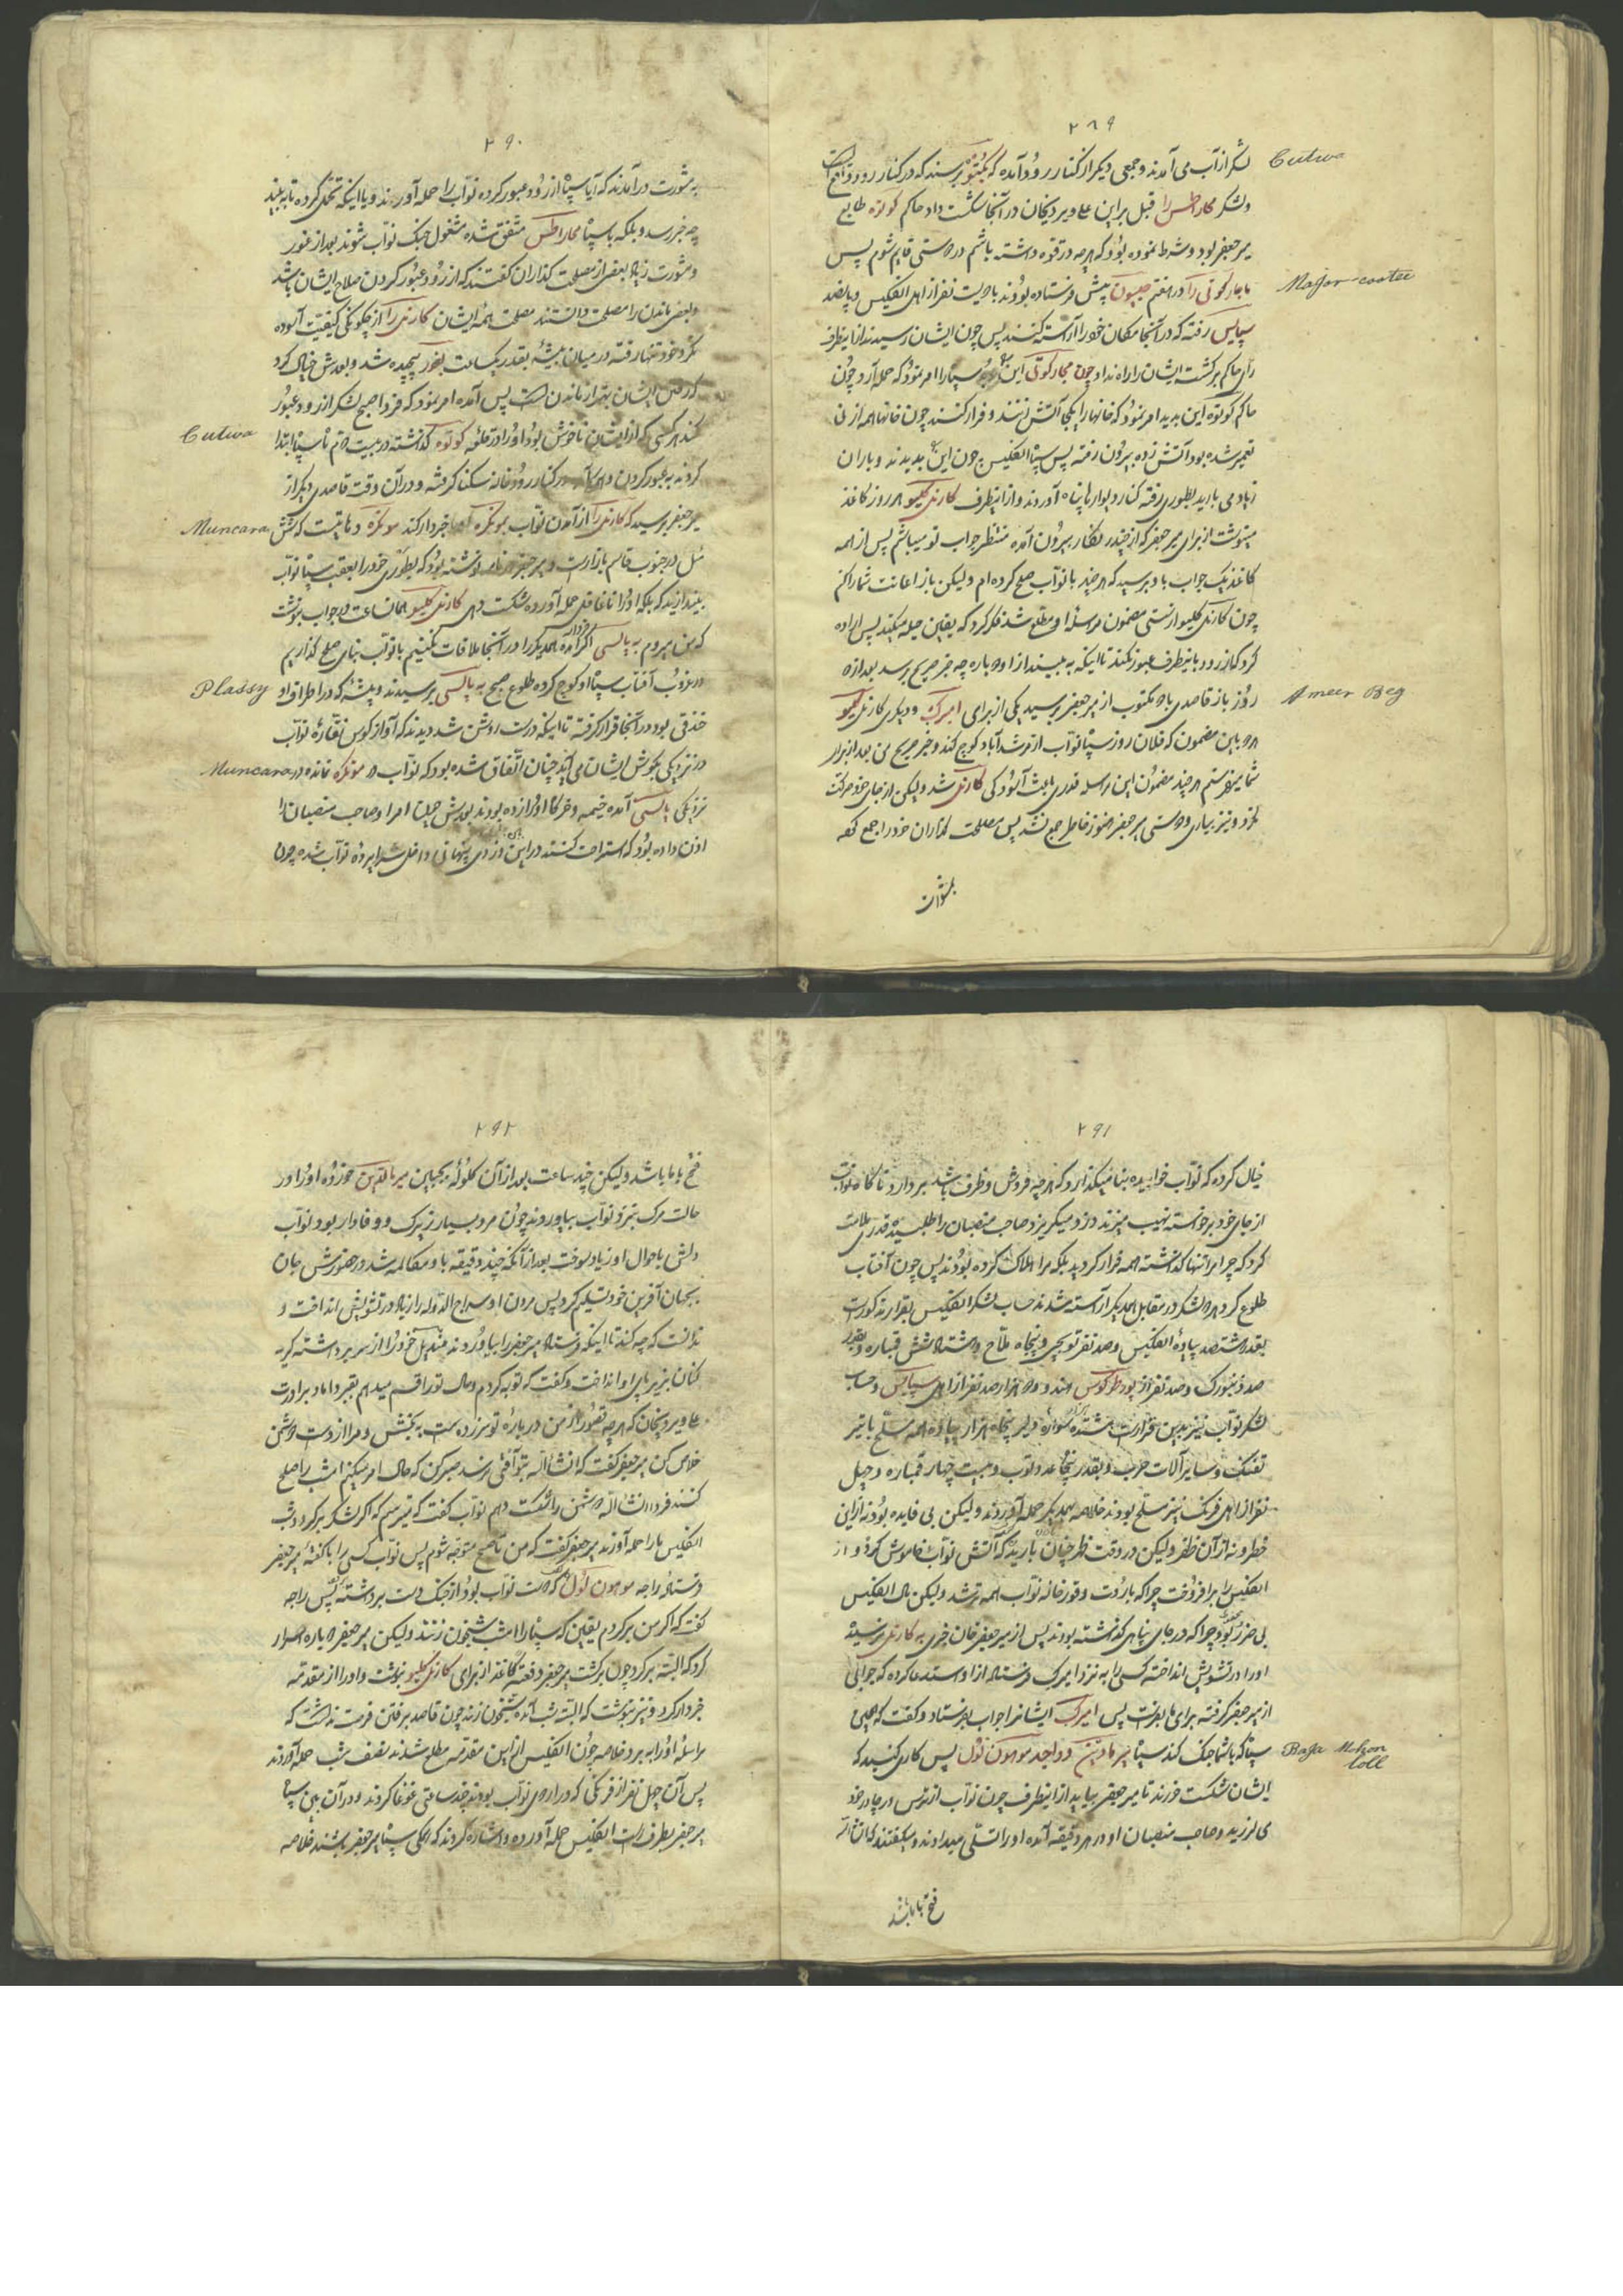 ۲۸۹
لشکر از آب می آمدند و جمعی دیگر از کنار رود آمده که برسند که در کنار رود واقع است
Cutwa
ولشکر مهاراطس را قبل بر این علی ویردیخان در آنجا شکست داد حاکم کوتوه طابع
میر جعفر بود و شرط نموده بود که هرچه در قوه داشته باشم در دوستی قایم شوم پس
ماجار کوتی را در هفتم جیون پیش فرستاده بودند با دویست نفر از اهل انگلیس و پانصد
Major-cootee
سپایس رفته که در آنجا مکان خود را آراسته کنند پس چون ایشان رسیدند از اینطرف
رأی حاکم برگشته ایشان را راه نداد چون مجار کوتی این بدید سپاه را امر نمود که حمله آرد چون
حاکم کوتوه این بدید امر نمود که خانها را یکجا آتش زنند و فرار کنند چون خانها همه از نی
تعمیر شده بود آتش زده بیرون رفته پس سپاه انگلیس چون این بدیدند و باران
زیاد می بارید بطوری رفته کنار دیوارها پناه آوردند و از اینطرف کارنل کلیو هر روز کاغذ
مینوشت از برای میر جعفر که از بیرون آمده منتظر جواب تو میباشم پس از همه
کاغذ یک جواب باو رسید که هرچند با نواب صلح کرده ام ولیکن باز اعانت شما را کنم
چون کارنل کلیو از سستی مضمون مرسله او مطلع شد فکر کرد که یقین حیله میکنند پس اراده
کرد که از رود باینطرف عبور نکند تا اینکه به بیند از او دوباره چه خبر صریح برسد بعد از دو
روز باز قاصدی با دو مکتوب از میر جعفر برسید یکی از برای امیر بک و دیگری کارنل کلیو
Ameer Beg
هردو باین مضمون که فلان روز سپاه نواب از مرشد آباد کوچ کند و خبر صریح من بعد از برای
شما میفرستم هرچند مضمون این مراسله قدری باعث آسودگی کارنل شد ولیکن از جای خود حرکت
نکرد و نیز بیاری و دوستی میر جعفر هنوز خاطر جمع نشد پس مصلحت گذاران خود را جمع کرده
بمشورت
۲۹۰
به مشورت درآمدند که آیا سپاه از رود عبور کرده نواب را حمله آورند و یا اینکه تحمل کرده تا به بینند
چه خبر رسد و بلکه با سپاه مهاراطس متفق شده مشغول جنک نواب شوند بعد از غور
و مشورت زیاد بعضی از مصلحت گذاران گفتند که از رود عبور کردن صلاح ایشان باشد
و بعضی ماندن را مصلحت دانستند مصلحت همه ایشان کارنل را از چگونگی کیفیت آسوده
نکرد خود تنها رفته در میان بیشهٔ بقدر یکساعت بغور پیچیده شد و بعدش خیال کرد
که رفتن ایشان بهتر از ماندن است پس آمده امر نمود که فردا صبح لشکر از رود عبور
کنند هر کسی که از ایشان ناخوش بود او را در قلعه کوتوه گذاشته در بیست دوم ماه سپاه ابتدا
Cutwa
کردند به عبور کردن و در کنار رودخانه سکنا گرفته و در آن وقت قاصدی دیگر از
میر جعفر برسید که کارنل را از آمدن نواب بمونکره خبردار کند مونکره دهاتیست که شش
Muncara
میل در جنوب قاسم بازار است و میر جعفر نوشته بود که بطوری خود را بعقب سپاه نواب
بیندازید که بلکه او را تا غافل حمله آورده شکست دهی کارنل کلیو همان ساعت در جواب نوشت
که من میروم به پالسی اگر آمده همدیگر را در آنجا ملاقات کنیم با نواب بنای صلح گذاریم
در غروب آفتاب سپاه او کوچ کرده طلوع صبح به پالسی برسیدند و بیشهٔ که در اطراف او
Plassy
خندقی بود در آنجا قرار گرفته تا اینکه درست روشن شد دیدند که آواز کوس نقاره نواب
در نزدیکی بگوش ایشان می آید چنان اتفاق شده بود که نواب در مونکره نمانده در
Muncara
نزدیکی پالسی آمده خیمه و خرگاه او را زده بودند بدورش جمله امرا و صاحب منصبان را
اذن داده بود که استراحت کنند در این دزدی پنهانی داخل سراپرده نواب شده چون
۲۹۱
خیال کرده که نواب خوابیده بنا میگذارد که هرچه فروش و ظرف باشد بردارد ناگاه نواب
از جای خود برخواسته نهیب میزند دزد میگریزد صاحب منصبان را طلبیده قدری ملامت
کرد که چرا مرا تنها گذاشته همه فرار کردید بلکه مرا هلاک کرده بودند پس چون آفتاب
طلوع کرد هر دو لشکر در مقابل همدیگر آراسته شدند حساب لشکر انگلیس بقرار مذکور است
بقدر هشتصد پیادهٔ انگلیس و صد نفر توپچی و پنجاه ملّاح و هشت توپ شش قنباره و بقدر
صد زنبورک و صد نفر از پورطوکوس هند و دو هزار صد نفر از اهل سپایس و حساب
لشکر نواب نیز بدین قرار است هشتده هزار سواره دیگر پنجاه هزار پیاده همه مسلح با تیر
تفنک و سایر آلات حرب و بقدر پنجاه عدد توپ و بیست چهار قمباره و چهل
نفر از اهل فرنک نیز مسلح بودند خلاصه بهمدیگر حمله آوردند ولیکن بی فایده بود نه از این
خطر و نه از آن ظفر ولیکن در وقت ظهر چنان بارید که آتش نواب خاموش کرد و از
انگلیس را برافروخت چرا که باروت و قورخانه نواب همه تر شد ولیکن مال انگلیس
بی ضرر بود چرا که در جای پناهی گذاشته بودند پس از میر جعفر خان خبری به کارنل نرسیده
او را در تشویش انداخته کسی را به نزد امیر بک فرستاده از او استدعا کرده که جوابی
از میر جعفر گرفته برای ما بفرست پس امیر بک ایشانرا جواب بفرستاد و گفت که همین
سپاه که با شما جنک کند سپاه میر مادین و راجه موهون لول پس کاری کنید که
Raja Mohon loll
ایشان شکست خورند تا میر جعفر بیاید از اینطرف چون نواب از ترس در چادر خود
می لرزید و صاحب منصبان او در هر دقیقه آمده او را تسلی میدادند و میگفتند که انشاالله
فتح با ما باشد
۲۹۲
فتح با ما باشد ولیکن چند ساعت بعد از آن گلولهٔ بجبین میر مادین خورده او را در
حالت مرک بنزد نواب بیاوردند چون مرد بسیار زیرک و وفادار بود نواب
دلش باحوال او زیاد سوخت بعد از آنکه چند دقیقه با او مکالمه شد در حضورش جان
بجهان آفرین خود تسلیم کرد پس مردن او سراج الدوله را زیاد در تشویش انداخت و
ندانست که چه کند تا اینکه فرستاده میر جعفر را بیاوردند مندیل خود را از سر برداشته گریه
کنان بزیر پای او انداخت و گفت که توبه کردم و حال تو را قسم میدهم بقبر داماد برادرت
علی ویردیخان که هرچه تقصیر از من در بارهٔ تو سرزده است به بخش و مرا از دست دشمن
خلاص کن میر جعفر گفت که انشاالله بتو آفتی نرسد صبر کن که حال امر میکنم امشب را صلح
کنند فردا انشاالله دشمن را شکست دهم نواب گفت که میترسم که اگر لشکر برگردد شب
انگلیس ما را حمله آورند میر جعفر گفت که من تا صبح متوجه شوم پس نواب کسی را با گفتهٔ میر جعفر
فرستاد راجه موهون لول که دوست نواب بود از جنک دست برداشته پس راجه
گفت که اگر من برگردم یقین که سپاه را امشب شبیخون زنند ولیکن میر جعفر دوباره اصرار
کرد که البته برگرد چون برگشت میر جعفر دفعة کاغذ از برای کارنل کلیو نوشت و او را از مقدمه
خبردار کرد و نیز نوشت که البته شب آمده شبیخون زنند چون قاصد بر رفتن فرصت نداشت که
مراسلهٔ او را به برد خلاصه چون انگلیس از این مقدمه مطلع شدند نصف شب حمله آوردند
پس آن چهل نفر از فرنکی که در اردوی نواب بودند چند ساعتی غوغا کردند و در آن بین سپاه
میر جعفر بطرف راست انگلیس حمله آورده و اشاره کردند که اهل سپاه میر جعفر باشند خلاصه